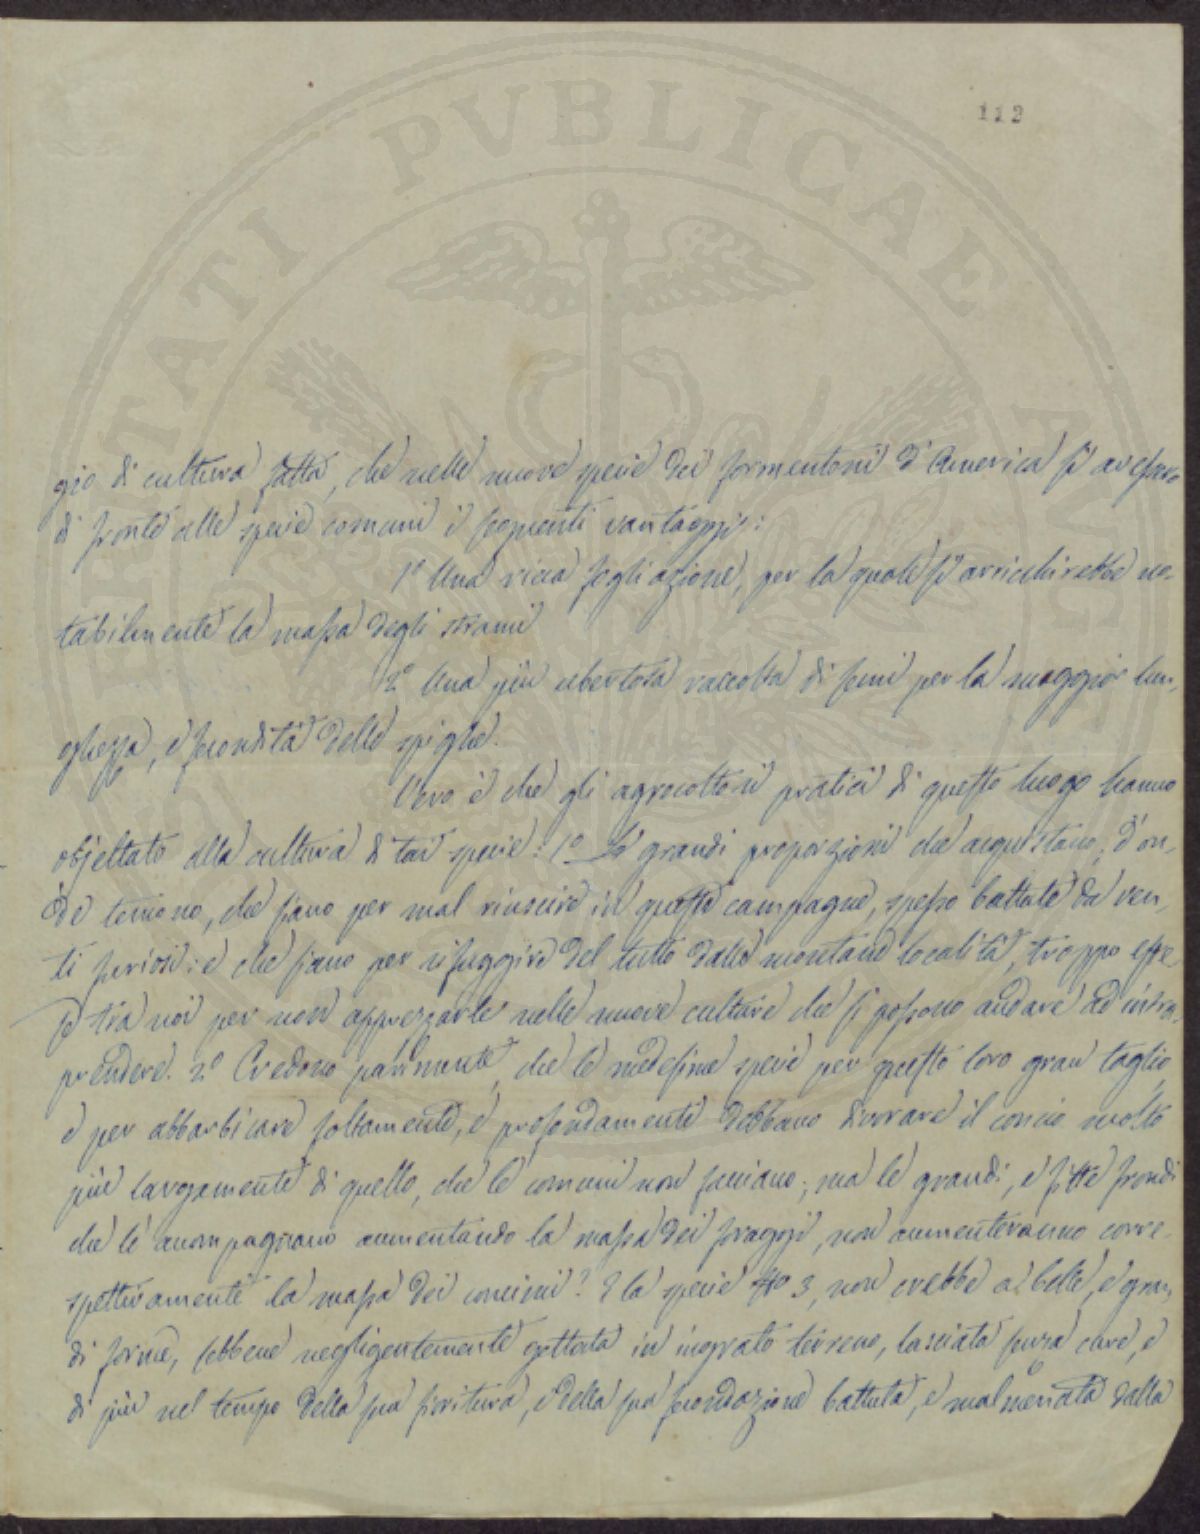 112
VTILITATI PVBLICAE
gio di cultura fatta, che nelle nuove specie dei formentoni d'America si avessero
di fronte alle specie comuni i seguenti vantaggi:
1º Una ricca fogliazione, per la quale si arricchirebbe no-
tabilmente la massa degli strami
2º Una più ubertosa raccolta di semi per la maggior lun-
ghezza, e fecondità delle spighe.
Vero è che gli agrocoltori pratici di questo luogo hanno
objettato alla cultura di tai specie: 1º Le grandi proporzioni che acquistano, d'on-
de temono, che siano per mal riuscire in queste campagne, spesso battute da ven-
ti furiosi: e che siano per rifuggire del tutto dalle montane località, troppo este-
se tra noi per non apprezzarle nelle nuove culture che si possono andare ad intra-
prendere. 2º Credono parimente, che le medesime specie per questo loro gran taglio,
e per abbarbicare foltamente, e profondamente debbano divorare il concio molto
più largamente di quello, che le comuni non facciano; ma le grandi, e fitte frondi
che le accompagnano aumentando la massa dei foraggi, non aumenteranno corre-
spettivamente la massa dei concimi? E la specie Nº 3, non crebbe a belle, e gran-
di forme, sebbene negligentemente gettata in ingrato terreno, lasciata senza cure, e
di più nel tempo della sua fioritura, e della sua fecondazione battuta, e malmenata dalla